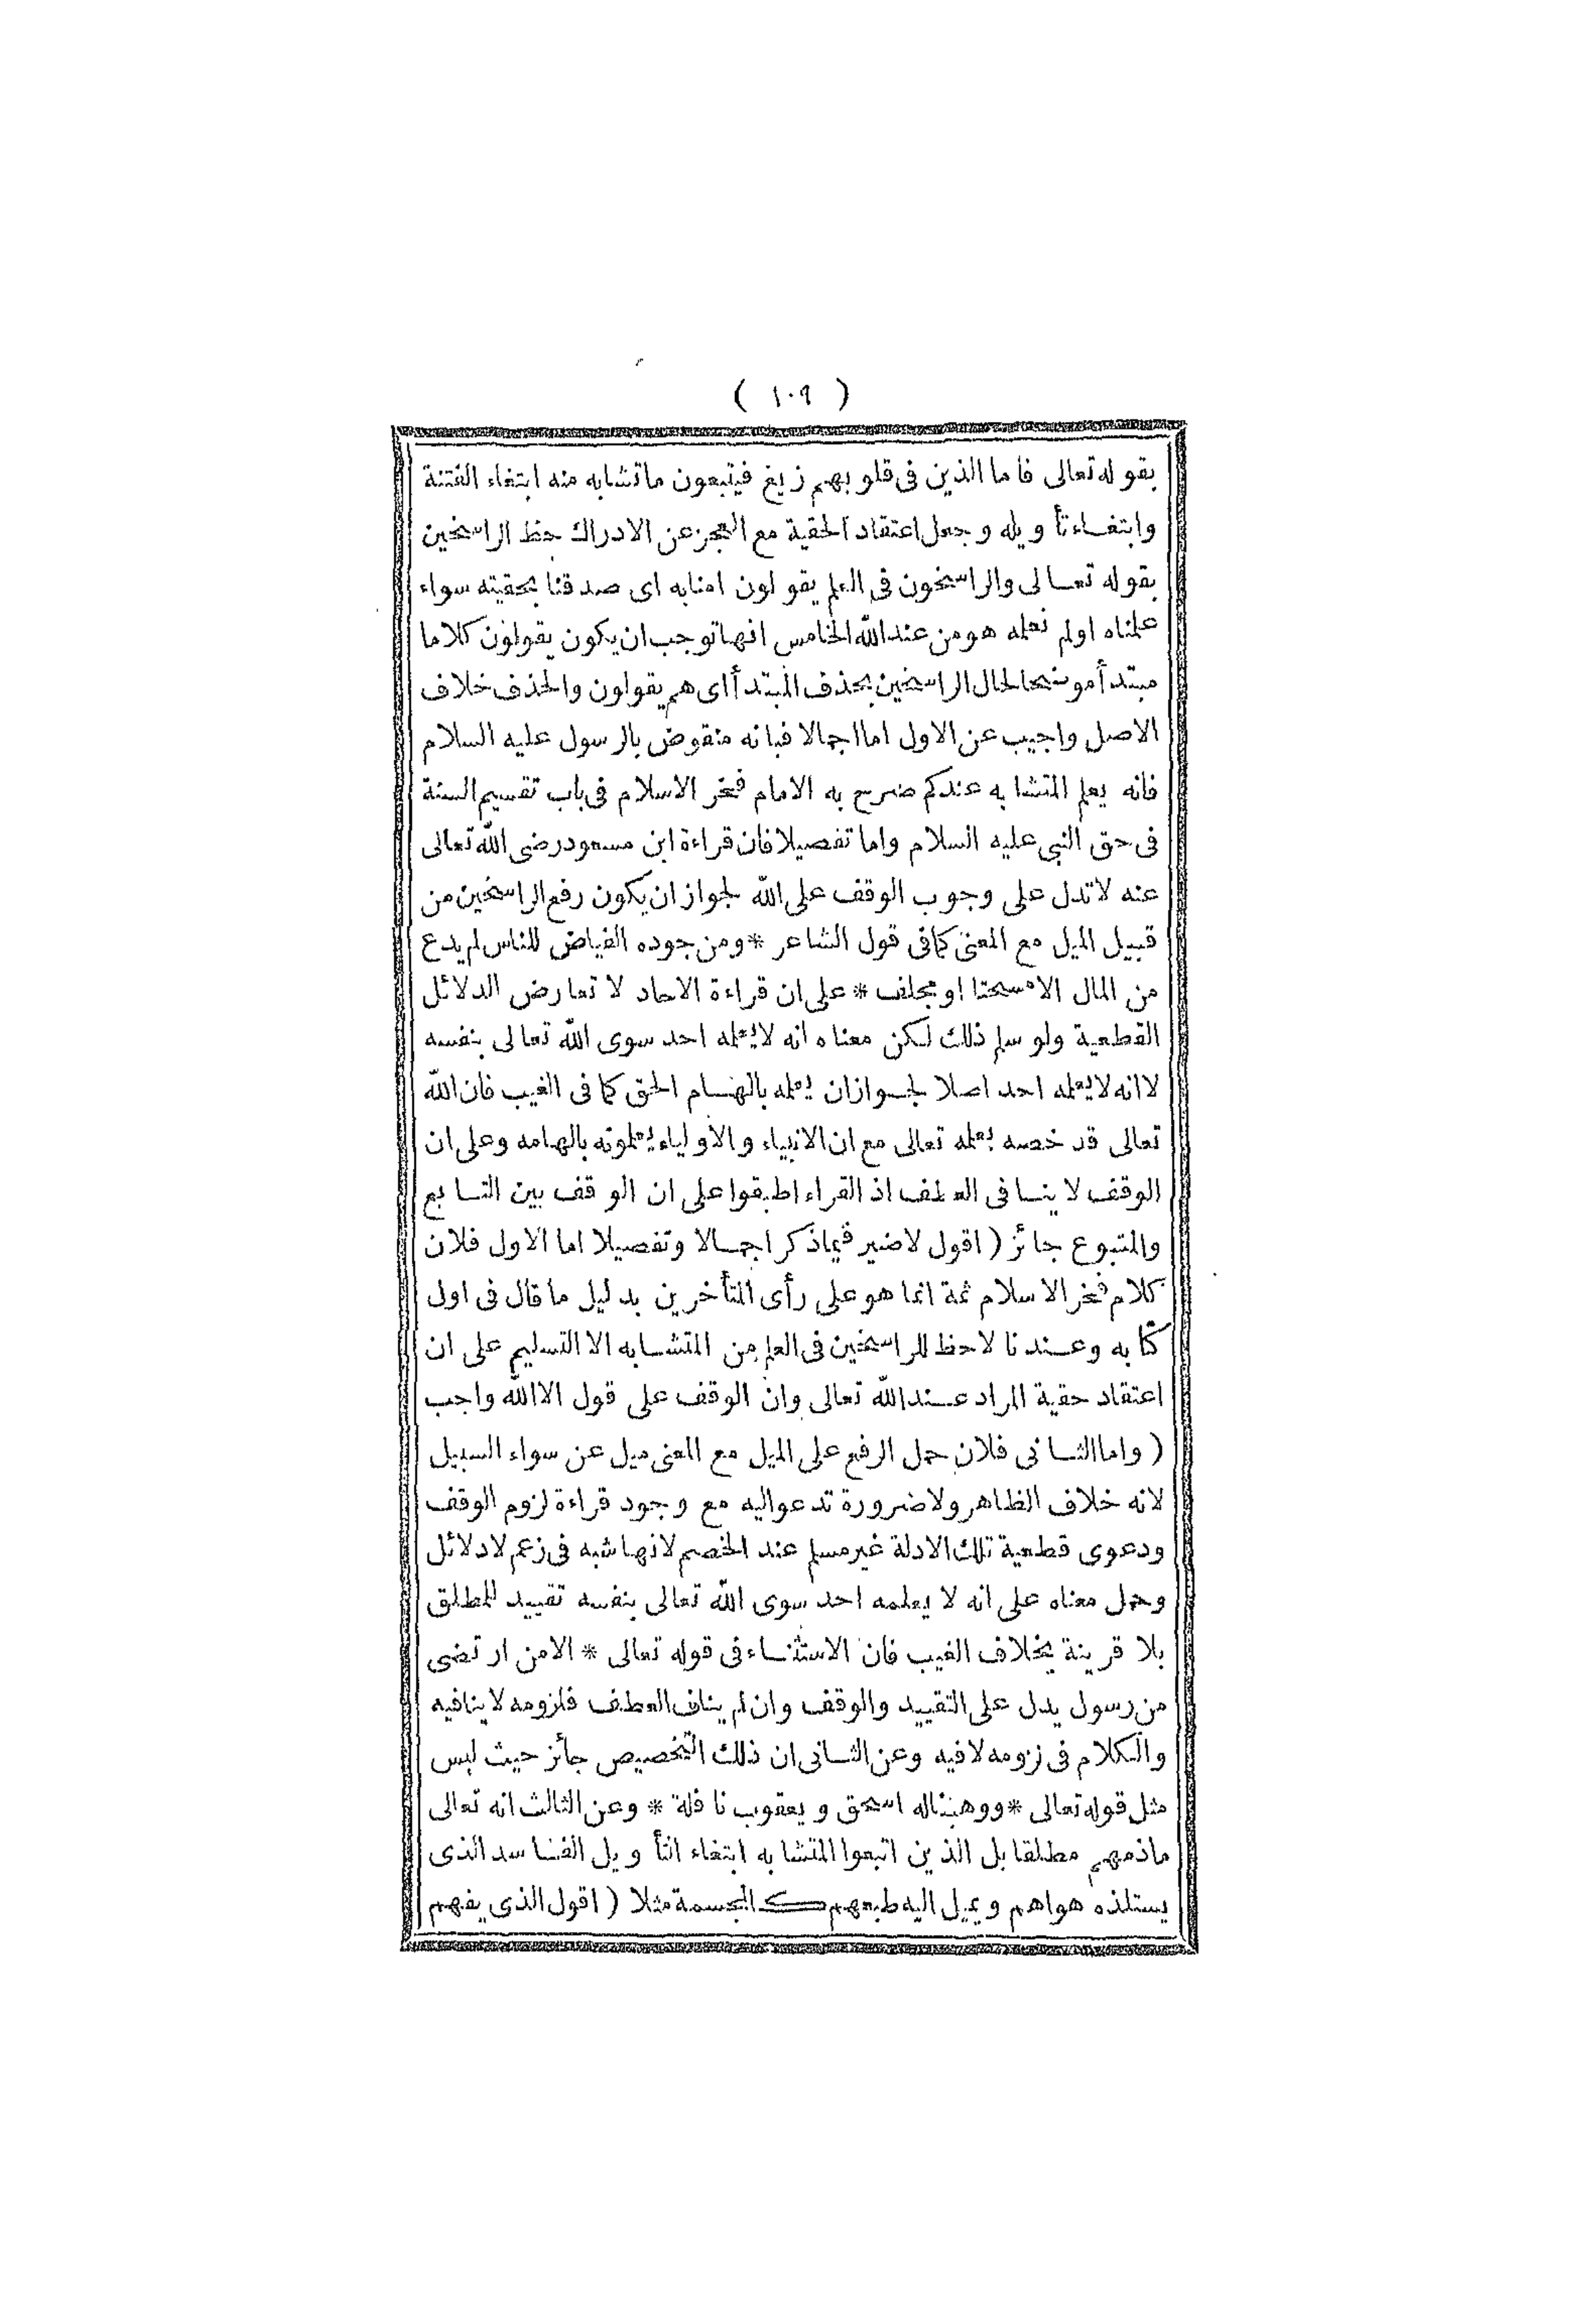 ( ١٠٩ )
بقوله تعالى فاما الذين فى قلوبهم زيغ فيتبعون ما تشابه منه ابتغاء الفتنة
وابتغاء تأويله وجعل اعتقاد الحقية مع العجز عن الادراك حظ الراسخين
بقوله تعالى والراسخون فى العلم يقولون امنابه اى صدقنا بحقيته سواء
علمناه اولم نعلمه هو من عند الله الخامس انها توجب ان يكون يقولون كلاما
مبتدأ موضحا لحال الراسخين بحذف المبتدأ اى هم يقولون والحذف خلاف
الاصل واجيب عن الاول اما اجمالا فبانه منقوض بالرسول عليه السلام
فانه يعلم المتشابه عندكم صرح به الامام فخر الاسلام فى باب تقسيم السنة
فى حق النبى عليه السلام واما تفصيلا فان قراءة ابن مسعود رضى الله تعالى
عنه لا تدل على وجوب الوقف على الله لجواز ان يكون رفع الراسخين من
قبيل الميل مع المعنى كما فى قول الشاعر * ومن جوده الفياض للناس لم يدع
من المال الا مسحتا او مجلف * على ان قراءة الاحاد لا تعارض الدلائل
القطعية ولو سلم ذلك لكن معناه انه لا يعلمه احد سوى الله تعالى بنفسه
لا انه لا يعلمه احد اصلا لجواز ان يعلمه بالهام الحق كما فى الغيب فان الله
تعالى قد خصه بعلمه تعالى مع ان الانبياء والاولياء يعلمونه بالهامه وعلى ان
الوقف لا ينافى العطف اذ القراء اطبقوا على ان الوقف بين التابع
والمتبوع جائز ( اقول لا ضير فيما ذكر اجمالا وتفصيلا اما الاول فلان
كلام فخر الاسلام ثمة انما هو على رأى المتأخرين بدليل ما قال فى اول
كتابه وعندنا لاحظ للراسخين فى العلم من المتشابه الا التسليم على ان
اعتقاد حقية المراد عند الله تعالى وان الوقف على قول الا الله واجب
( واما الثانى فلان حمل الرفع على الميل مع المعنى ميل عن سواء السبيل
لانه خلاف الظاهر ولا ضرورة تدعو اليه مع وجود قراءة لزوم الوقف
ودعوى قطعية تلك الادلة غير مسلم عند الخصم لانها شبه فى زعم لا دلائل
وحمل معناه على انه لا يعلمه احد سوى الله تعالى بنفسه تقييد للمطلق
بلا قرينة بخلاف الغيب فان الاستثناء فى قوله تعالى * الا من ارتضى
من رسول يدل على التقييد والوقف وان لم يناف العطف فلزومه لا ينافيه
والكلام فى لزومه لا فيه وعن الثانى ان ذلك التخصيص جائز حيث لبس
مثل قوله تعالى * ووهبنا له اسحق ويعقوب نافلة * وعن الثالث انه تعالى
ماذمهم مطلقا بل الذين اتبعوا المتشابه ابتغاء التأويل الفاسد الذى
يستلذه هواهم ويميل اليه طبعهم كالمجسمة مثلا ( اقول الذى يفهم